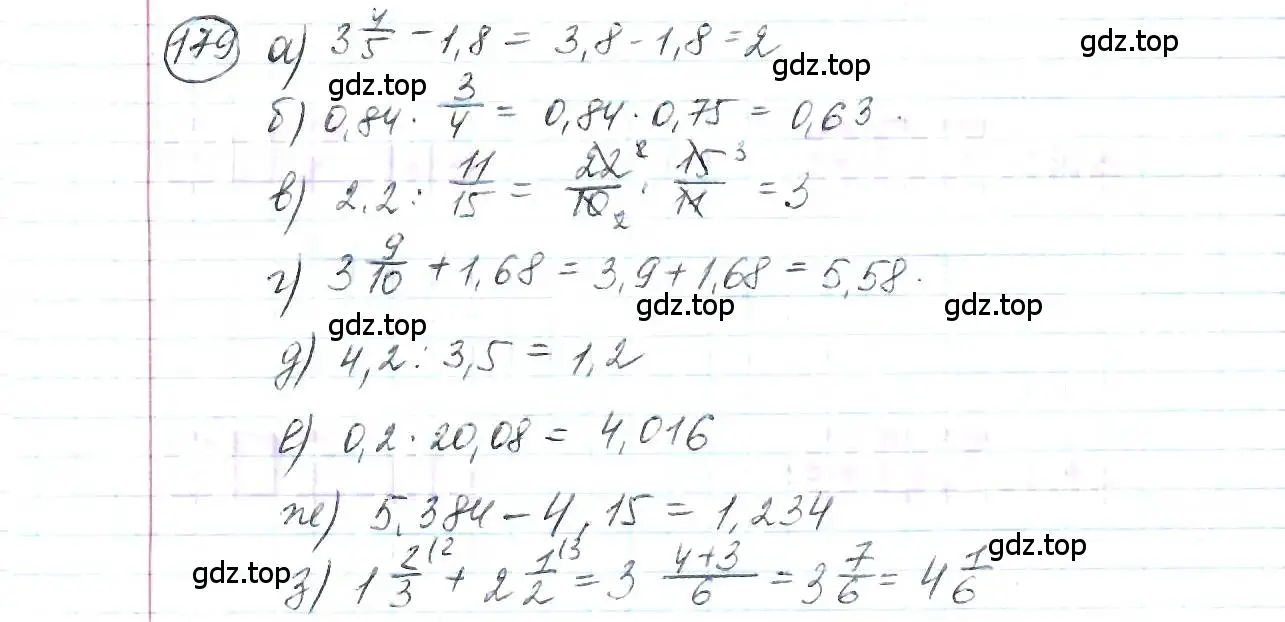 179 а) 3 4/5 - 1,8 = 3,8 - 1,8 = 2
gdz.top
gdz.top
gdz.top
б) 0,84 · 3/4 = 0,84 · 0,75 = 0,63.
в) 2,2 : 11/15 = 22²/10₂ · 15³/11 = 3
г) 3 9/10 + 1,68 = 3,9 + 1,68 = 5,58.
gdz.top
gdz.top
gdz.top
д) 4,2 : 3,5 = 1,2
е) 0,2 · 20,08 = 4,016
ж) 5,384 - 4,15 = 1,234
gdz.top
gdz.top
з) 1 2/3 (2 + 2 1/2 (3 = 3 4+3/6 = 3 7/6 = 4 1/6